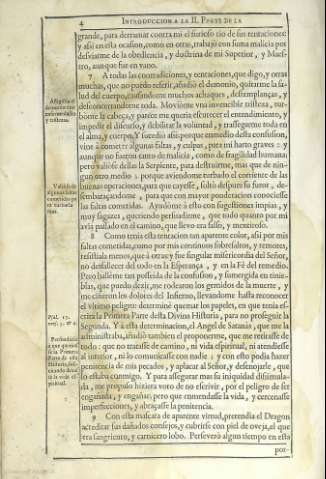 4 INTRODUCCION A LA II. PARTE DE LA
grande, para derramar contra mi el furioso rio de sus tentaciones:
y assi en esta ocasion, como en otras, trabajò con suma malicia por
desviarme de la obediencia, y doctrina de mi Superior, y Maes-
tro, aunque fue en vano.
7 A todas las contradiciones, y tentaciones, que digo, y otras
muchas, que no puedo referir, añadio el demonio, quitarme la sa-
lud del cuerpo, causandome muchos achaques, destemplanças, y
desconcertandome toda. Moviome vna invencible tristeza, tur-
bome la cabeça, y parece me queria escurecer el entendimiento, y
impedir el discurso, y debilitar la voluntad, y trassegarme toda en
el alma, y cuerpo. Y sucedio assi: porque en medio desta confusion,
vine à cometer algunas faltas, y culpas, para mi harto graves
aunque no fueron tanto de malicia, como de fragilidad humana:
pero valiose dellas la Serpiente, para destruirme, mas que de nin-
gun otro medio; porque aviendome turbado el corriente de las
buenas operaciones, para que cayesse, soltò despues su furor, de-
sembaraçandome, para que con mayor ponderacion conociesse
las faltas cometidas. Ayudòme à esto con sugestiones impias, y
muy sagazes, queriendo persuadirme, que todo quanto por mi
avia passado en el camino, que llevo era falso, y mentiroso.
8 Como tenia esta tentacion tan aparente color, assi por mis
faltas cometidas, como por mis continuos sobresaltos, y temores,
resistiala menos, que à otras; y fue singular misericordia del Señor,
no desfallecer del todo en la Esperança, y en la Fè del remedio.
Pero halleme tan posseida de la confusion, y sumergida en tinie-
blas, que puedo dezir, me rodearon los gemidos de la muerte, y
me ciñeron los dolores del Infierno, llevandome hasta reconocer
el vltimo peligro: determinè quemar los papeles, en que tenia es-
crita la Primera Parte desta Divina Historia, para no proseguir la
Segunda. Y à esta determinacion, el Angel de Satanàs, que me la
administraba, añadiò tambien el proponerme, que me retirasse de
todo: que no tratasse de camino, ni vida espiritual, ni atendiesse
al interior, ni lo comunicasse con nadie; y con esto podia hazer
penitencia de mis pecados, y aplacar al Señor, y desenojarle, que
lo estaba conmigo. Y para assegurar mas su iniquidad dissimula-
da, me propuso hiziera voto de no escrivir, por el peligro de ser
engañada, y engañar; pero que enmendasse la vida, y cercenasse
imperfecciones, y abraçasse la penitencia.
9 Con esta mascara de aparente virtud, pretendia el Dragon
acreditar sus dañados consejos, y cubrirse con piel de oveja, el que
era sangriento, y carnicero lobo. Perseverò algun tiempo en esta
por-
Psal. 17.